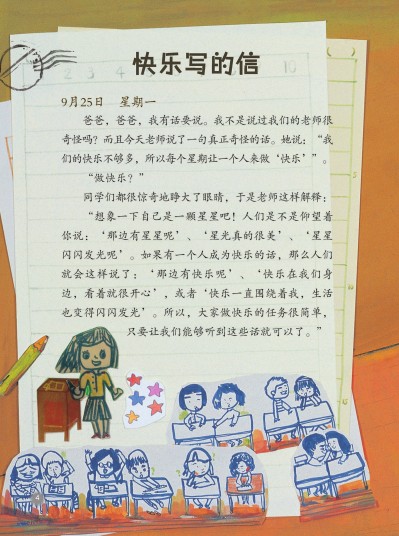 快乐写的信
9月25日 星期一
爸爸，爸爸，我有话要说。我不是说过我们的老师很
奇怪吗？而且今天老师说了一句真正奇怪的话。她说：“我
们的快乐不够多，所以每个星期让一个人来做‘快乐’”。
“做快乐？”
同学们都很惊奇地睁大了眼睛，于是老师这样解释：
“想象一下自己是一颗星星吧！人们是不是仰望着
你说：‘那边有星星呢’、‘星光真的很美’、‘星星
闪闪发光呢’。如果有一个人成为快乐的话，那么人们
就会这样说了：‘那边有快乐呢’、‘快乐在我们身
边，看着就很开心’，或者‘快乐一直围绕着我，生活
也变得闪闪发光’。所以，大家做快乐的任务很简单，
只要让我们能够听到这些话就可以了。”